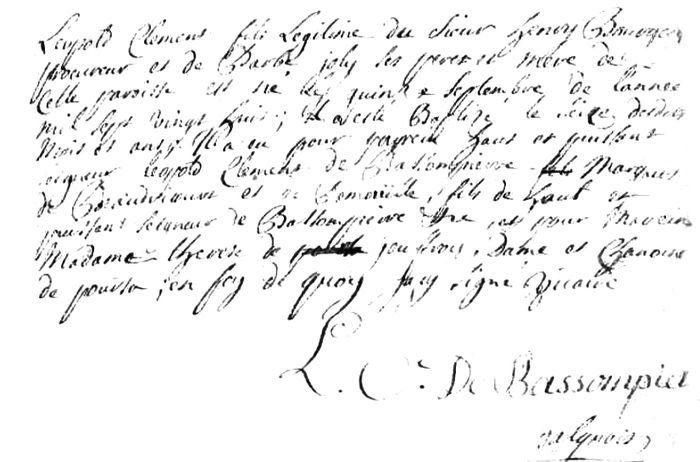 Leopold Clement fils Legitime du Sieur Henry Bourgeois
procureur et de Barbe joly ses perer et mere de
Cette paroisse est né le quinze Septembre de l'année
mil sept vingt huit; et a este Baptize le seize desdits
Mois et an; Il a eu pour parrein haut et puissant
seigneur leopold Clement de Bassompierre Marquis
de et de Remoncille, fils de haut et
puissant Seigneur de Bassompierre et pour Mareine
Madame therese de Dame et Chanoine
de ; en foy de quoy j'ay signé Vicaire
L. C. De Bassompier